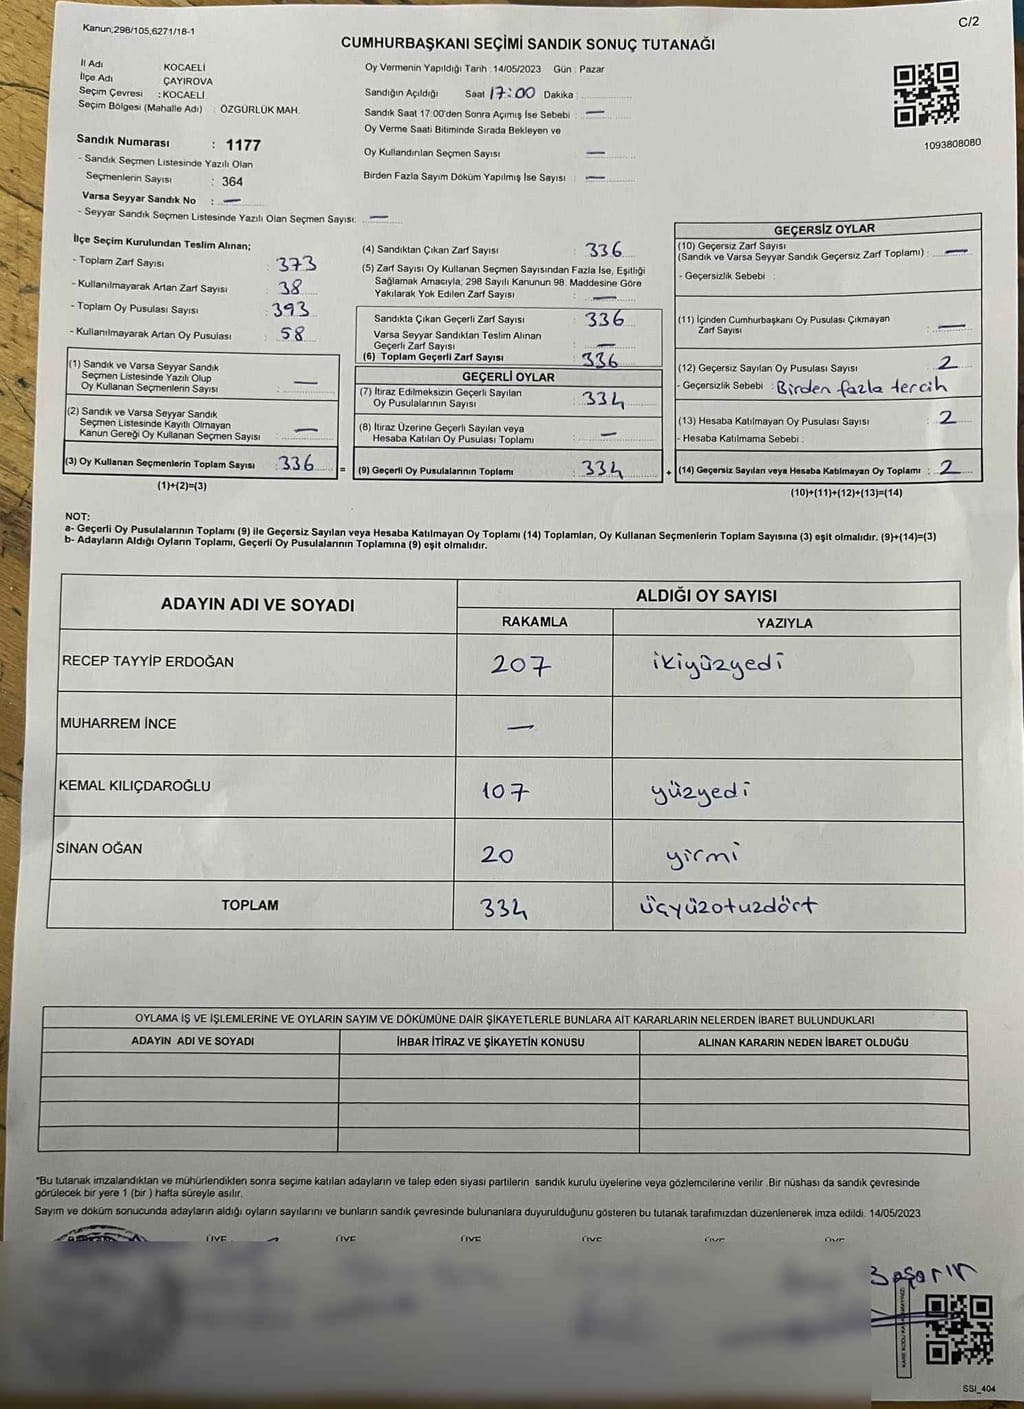 Kanun;298/105,6271/18-1
C/2
CUMHURBAŞKANI SEÇİMİ SANDIK SONUÇ TUTANAĞI
İl Adı KOCAELİ
İlçe Adı ÇAYIROVA
Seçim Çevresi : KOCAELİ
Seçim Bölgesi (Mahalle Adı) : ÖZGÜRLÜK MAH.
Sandık Numarası : 1177
- Sandık Seçmen Listesinde Yazılı Olan
Seçmenlerin Sayısı : 364
Varsa Seyyar Sandık No : —
- Seyyar Sandık Seçmen Listesinde Yazılı Olan Seçmen Sayısı: —
Oy Vermenin Yapıldığı Tarih : 14/05/2023 Gün : Pazar
Sandığın Açıldığı Saat 17:00 Dakika :
Sandık Saat 17:00'den Sonra Açımış İse Sebebi : —
Oy Verme Saati Bitiminde Sırada Bekleyen ve
Oy Kullandırılan Seçmen Sayısı —
Birden Fazla Sayım Döküm Yapılmış İse Sayısı : —
1093808080
İlçe Seçim Kurulundan Teslim Alınan;
- Toplam Zarf Sayısı : 373
- Kullanılmayarak Artan Zarf Sayısı : 38
- Toplam Oy Pusulası Sayısı : 393
- Kullanılmayarak Artan Oy Pusulası : 58
(1) Sandık ve Varsa Seyyar Sandık
Seçmen Listesinde Yazılı Olup
Oy Kullanan Seçmenlerin Sayısı : —
(2) Sandık ve Varsa Seyyar Sandık
Seçmen Listesinde Kayıtlı Olmayan
Kanun Gereği Oy Kullanan Seçmen Sayısı : —
(3) Oy Kullanan Seçmenlerin Toplam Sayısı : 336 =
(1)+(2)=(3)
(4) Sandıktan Çıkan Zarf Sayısı : 336
(5) Zarf Sayısı Oy Kullanan Seçmen Sayısından Fazla İse, Eşitliği
Sağlamak Amacıyla, 298 Sayılı Kanunun 98. Maddesine Göre
Yakılarak Yok Edilen Zarf Sayısı : —
Sandıkta Çıkan Geçerli Zarf Sayısı : 336
Varsa Seyyar Sandıktan Teslim Alınan
Geçerli Zarf Sayısı : —
(6) Toplam Geçerli Zarf Sayısı 336
GEÇERLİ OYLAR
(7) İtiraz Edilmeksizin Geçerli Sayılan
Oy Pusulalarının Sayısı : 334
(8) İtiraz Üzerine Geçerli Sayılan veya
Hesaba Katılan Oy Pusulası Toplamı : —
(9) Geçerli Oy Pusulalarının Toplamı : 334 +
GEÇERSİZ OYLAR
(10) Geçersiz Zarf Sayısı
(Sandık ve Varsa Seyyar Sandık Geçersiz Zarf Toplamı) : —
- Geçersizlik Sebebi :
(11) İçinden Cumhurbaşkanı Oy Pusulası Çıkmayan
Zarf Sayısı : —
(12) Geçersiz Sayılan Oy Pusulası Sayısı : 2
- Geçersizlik Sebebi : Birden fazla tercih
(13) Hesaba Katılmayan Oy Pusulası Sayısı : 2
- Hesaba Katılmama Sebebi :
(14) Geçersiz Sayılan veya Hesaba Katılmayan Oy Toplamı : 2
(10)+(11)+(12)+(13)=(14)
NOT:
a- Geçerli Oy Pusulalarının Toplamı (9) ile Geçersiz Sayılan veya Hesaba Katılmayan Oy Toplamı (14) Toplamları, Oy Kullanan Seçmenlerin Toplam Sayısına (3) eşit olmalıdır. (9)+(14)=(3)
b- Adayların Aldığı Oyların Toplamı, Geçerli Oy Pusulalarının Toplamına (9) eşit olmalıdır.
ADAYIN ADI VE SOYADI
ALDIĞI OY SAYISI
RAKAMLA YAZIYLA
RECEP TAYYİP ERDOĞAN 207 ikiyüzyedi
MUHARREM İNCE —
KEMAL KILIÇDAROĞLU 107 yüzyedi
SİNAN OĞAN 20 yirmi
TOPLAM 334 üçyüzotuzdört
OYLAMA İŞ VE İŞLEMLERİNE VE OYLARIN SAYIM VE DÖKÜMÜNE DAİR ŞİKAYETLERLE BUNLARA AİT KARARLARIN NELERDEN İBARET BULUNDUKLARI
ADAYIN ADI VE SOYADI İHBAR İTİRAZ VE ŞİKAYETİN KONUSU ALINAN KARARIN NEDEN İBARET OLDUĞU
*Bu tutanak imzalandıktan ve mühürlendikten sonra seçime katılan adayların ve talep eden siyasi partilerin sandık kurulu üyelerine veya gözlemcilerine verilir .Bir nüshası da sandık çevresinde
görülecek bir yere 1 (bir ) hafta süreyle asılır.
Sayım ve döküm sonucunda adayların aldığı oyların sayılarını ve bunların sandık çevresinde bulunanlara duyurulduğunu gösteren bu tutanak tarafımızdan düzenlenerek imza edildi. 14/05/2023
ÜYE ÜYE ÜYE ÜYE ÜYE ÜYE
Başarır
SSI_404